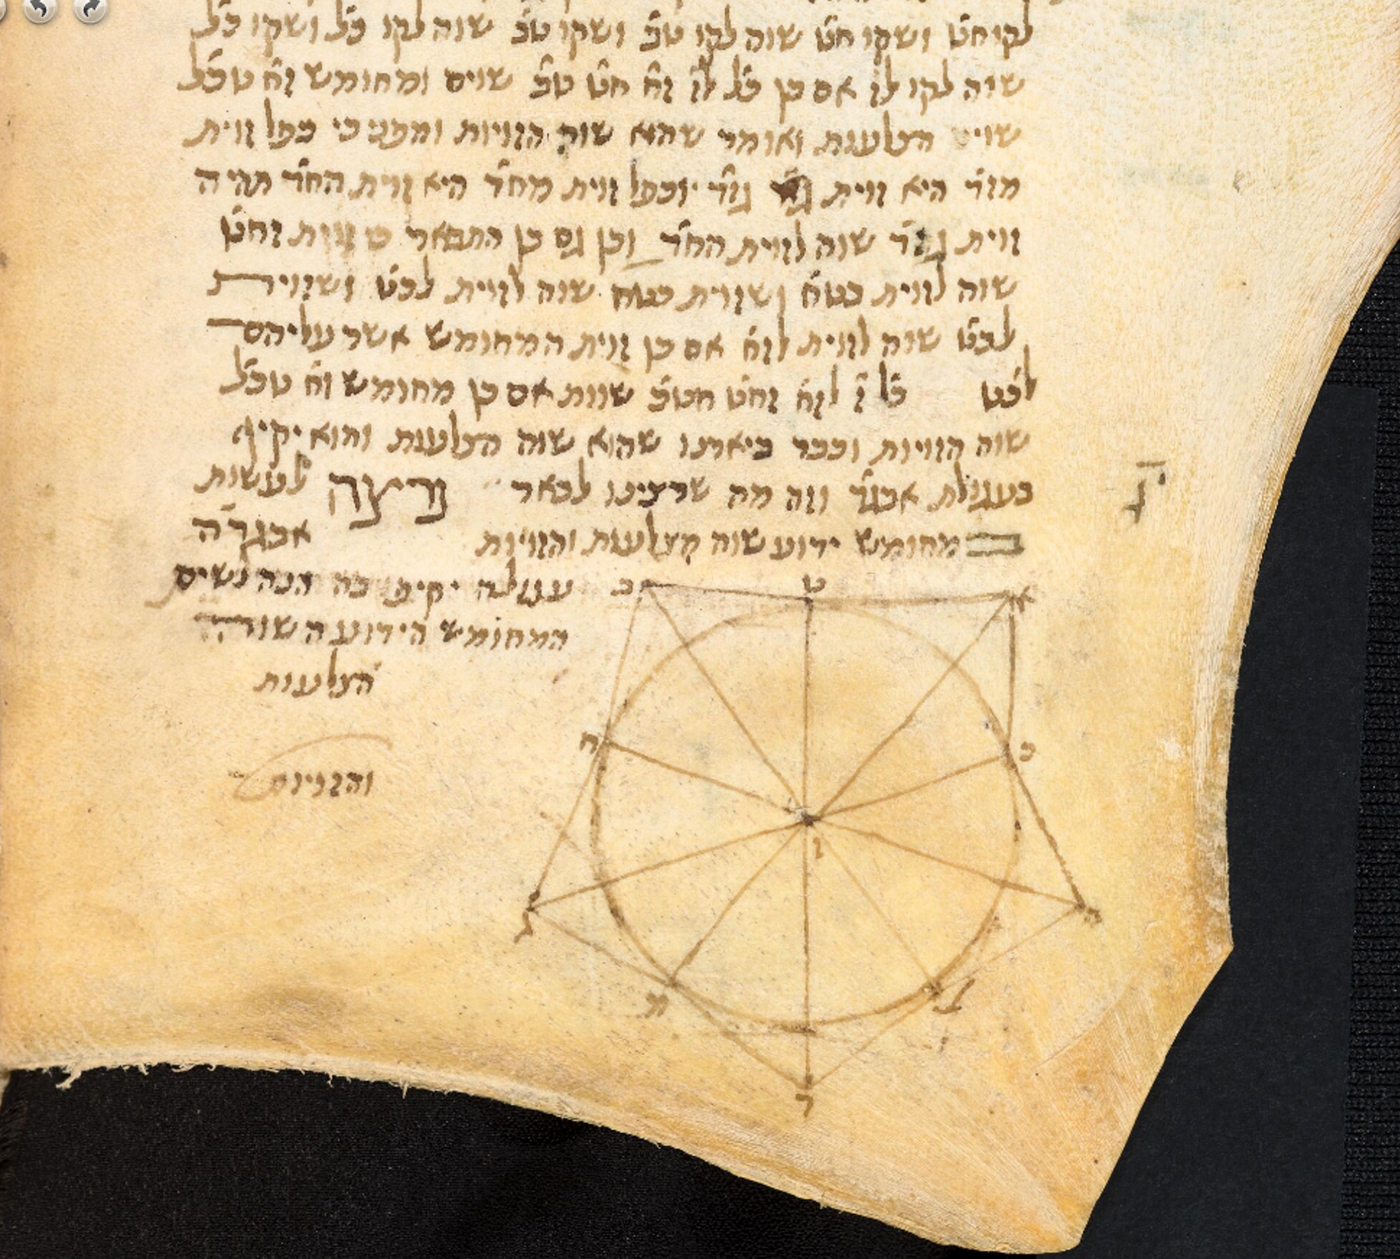 לקו חט ושקו חט שוה לקו טכ ושקו טכ שוה לקו כל ושקו כל
שוה לקו לז אם כן כל לז זח חט טכ שוים ומחומש זח טכל
שוים הצלעות ואומר שהוא שוה הזויות ומפני כי כפל זוית
מזד היא זוית גזד וכפל זוית מחד היא זוית החד תהיה
זוית גזד שוה לזוית החד וכן גם כן התבאר זוית זחט
שוה לזוית כטח ושזוית כטח שוה לזוית לכט ושזוית
לכט שוה לזוית לזח אם כן זוית המחומש אשר עליהם
לכט כל ז לזח זחט חטכ שוות אם כן מחומש זח טכל
שוה הזויות וכבר ביארנו שהוא שוה הצלעות והוא יקיף
בעגולת אבגד וזה מה שרצינו לבאר נרצה לעשות
יג
מחומש ידוע שוה הצלעות והזויות אבגדה
עגולה יקיפו בה הנה נשים
המחומש הידוע השוה
הצלעות
והזויות
ב ט א
ח כ
ז
ג ה
מ ל
ד